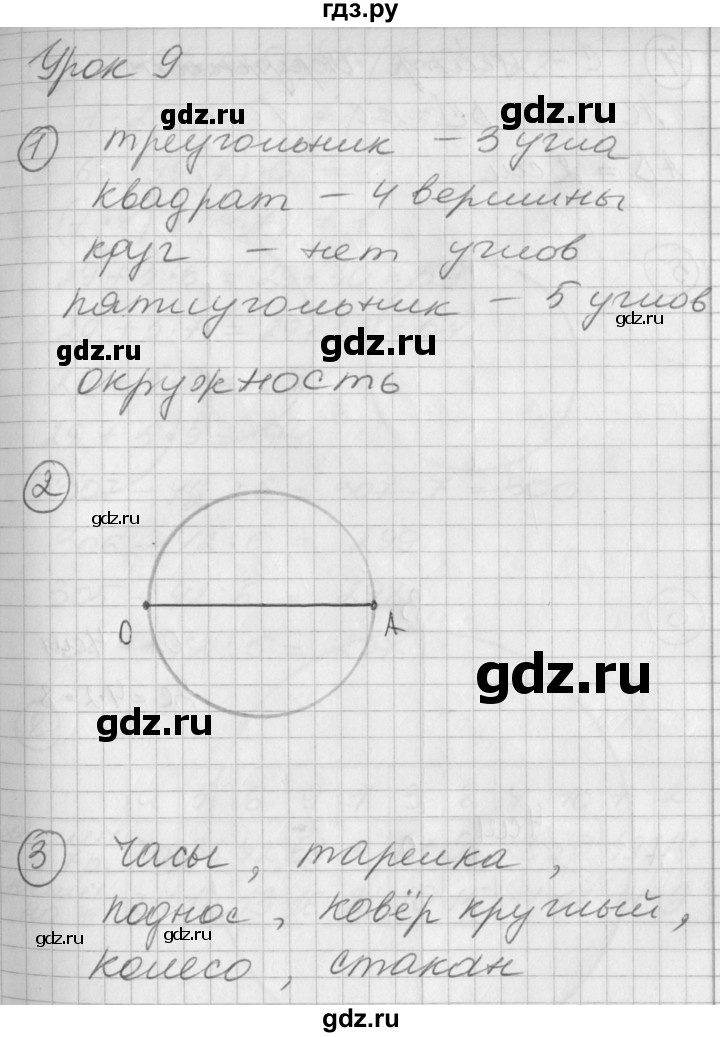 гдз.ру
Урок 9
gdz.ru
gdz.ru
1 треугольник – 3 угла
квадрат – 4 вершины
круг – нет углов
пятиугольник – 5 углов
gdz.ru
gdz.ru
gdz.ru
окружность
2
gdz.ru
О А
gdz.ru
gdz.ru
3 часы, тарелка,
поднос, ковёр круглый,
gdz.ru
gdz.ru
колесо, стакан
gdz.ru